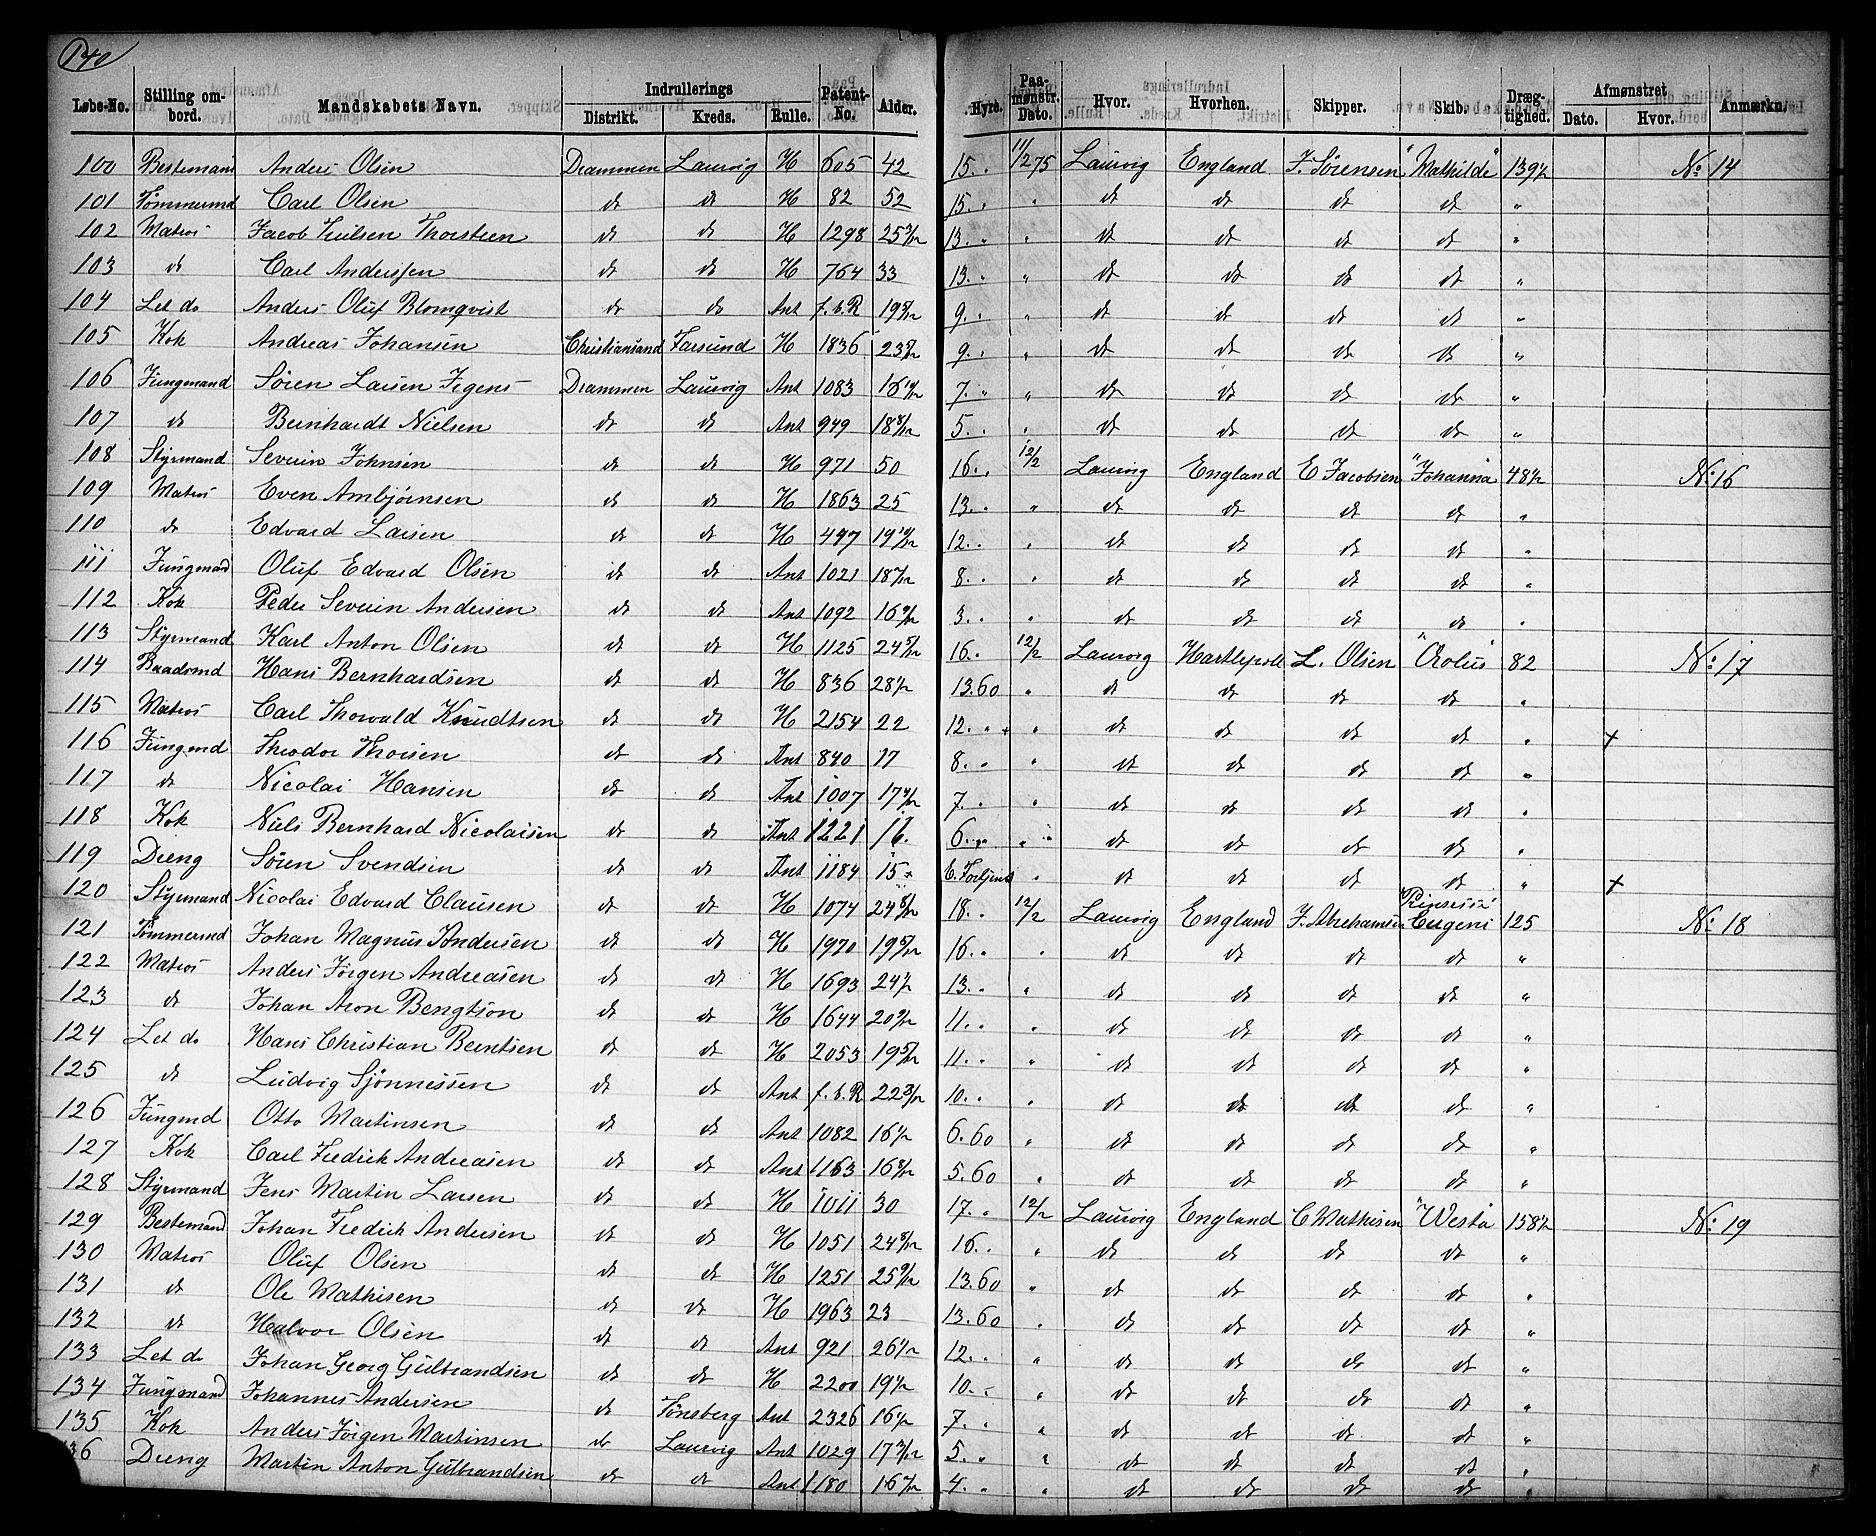 140
Løbe-No. Stilling ombord. Mandskabets Navn. Indrullerings Distrikt. Kreds. Rulle. Patent-No. Alder. Hyre. Paamønstr. Dato. Hvor. Hvorhen. Skipper. Skib. Drægtighed. Afmønstret Dato. Hvor. Anmærkn.
100 Bestemand Anders Olsen Drammen Laurvig H 605 42 15. " 11/2 75 Laurvig England J. Sørensen "Mathilde" 139½ No 14
101 Tømmermd Carl Olsen do do H 82 52 15. " " do do do do "
102 Matros Jacob Juilsen Thorstsen do do H 1298 25 3/12 13. " " do do do do "
103 do Carl Anderssen do do H 764 33 13. " " do do do do "
104 Let do Anders Oluf Blomqvist do do Ant f.t.R 19 5/12 9. " " do do do do "
105 Kok Andreas Johansen Christiansand Farsund H 1836 23 5/12 9. " " do do do do "
106 Jungmand Søren Larsen Irgens Drammen Laurvig Ant 1083 16 10/12 7. " " do do do do "
107 do Bernhardt Nielsen do do Ant 949 18 8/12 5. " " do do do do "
108 Styrmand Severin Johnsen do do H 971 50 16. " 12/2 Laurvig England E Jacobsen "Johanna" 48½ No 16
109 Matros Even Ambjørnsen do do H 1863 25 13. " " do do do do "
110 do Edvard Larsen do do H 497 19 10/12 12. " " do do do do "
111 Jungmand Oluf Edvard Olsen do do Ant 1021 18 7/12 8. " " do do do do "
112 Kok Peder Severin Andersen do do Ant 1092 16 9/12 3. " " do do do do "
113 Styrmand Karl Anton Olsen do do H 1125 24 5/12 16. " 12/2 Laurvig Hartlepool L. Olsen "Æolus" 82 No 17
114 Baadsmd Hans Bernhardsen do do H 836 28½ 13.60 " do do do do "
115 Matros Carl Thorvald Knudtsen do do H 2154 22 12. " + " do do do do " +
116 Jungmd Theodor Thorsen do do Ant 840 17 8. " " do do do do "
117 do Nicolai Hansen do do Ant 1007 17 4/12 7. " " do do do do "
118 Kok Niels Bernhard Nicolaisen do do Ant 1221 16. 6. " " do do do do "
119 Dreng Søren Svendsen do do Ant 1184 15 + 6. Fortjent " do do do do " +
120 Styrmand Nicolai Edvard Clausen do do H 1074 24 8/12 18. " 12/2 Laurvig England J. Abrahamsen "Prinsesse Eugeni" 125 No 18
121 Tømmermd Johan Magnus Andersen do do H 1970 19 5/12 16. " " do do do do "
122 Matros Anders Jørgen Andreasen do do H 1693 24½ 13. " " do do do do "
123 do Johan Aron Bengtson do do H 1644 20 9/12 11. " " do do do do "
124 Let do Hans Christian Berntsen do do H 2053 19 5/12 11. " " do do do do "
125 do Ludvig Sjønnessen do do Ant f.t.R 22 3/12 10. " " do do do do "
126 Jungmd Otto Martinsen do do Ant 1082 16½ 6.60 " do do do do "
127 Kok Carl Fredrik Andreasen do do Ant 1163 16 8/12 5.60 " do do do do "
128 Styrmand Jens Martin Larsen do do H 1011 30 17. " 12/2 Laurvig England C Mathisen "Westa" 158½ No 19
129 Bestemand Johan Fredrik Andersen do do H 1051 24 8/12 16. " " do do do do "
130 Matros Oluf Olsen do do H 1251 25 9/12 13.60 " do do do do "
131 do Ole Mathisen do do H 1963 23 13.60 " do do do do "
132 do Halvor Olsen do do Ant 921 26½ 12. " " do do do do "
133 Let do Johan Georg Gulbrandsen do do H 2200 19½ 10. " " do do do do "
134 Jungmand Johannes Andersen do Tønsberg Ant 2326 16½ 7. " " do do do do "
135 Kok Anders Jørgen Martinsen do Laurvig Ant 1029 17 3/12 5. " " do do do do "
36 Dreng Martin Anton Gulbrandsen do do Ant 1180 16 7/12 4. " " do do do do "